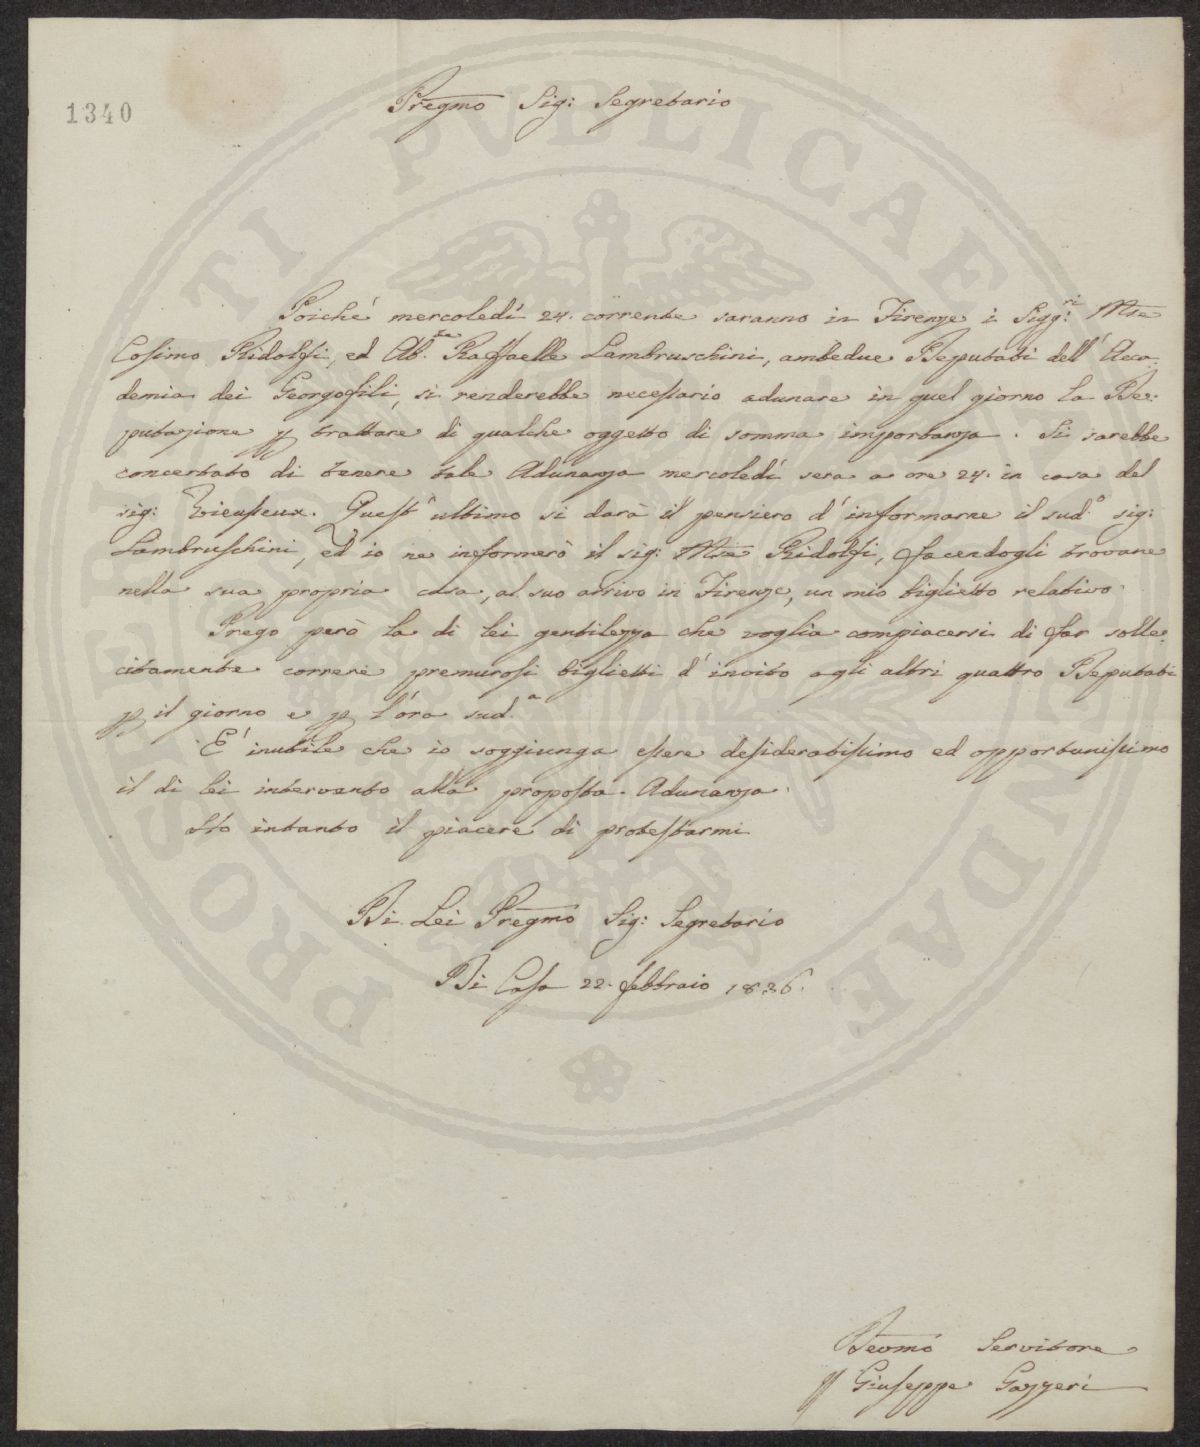 1340
Pregmo Sig: Segretario
Poiché mercoledì 24. corrente saranno in Firenze i Sigg:ri Mse
Cosimo Ridolfi, ed Ab.te Raffaelle Lambruschini, ambedue Deputati dell'Acca:
demia dei Georgofili, si renderebbe necessario adunare in quel giorno la De:
putazione p trattare di qualche oggetto di somma importanza. Si sarebbe
concertato di tenere tale Adunanza mercoledì sera a ore 24. in casa del
sig: Vieusseux. Quest'ultimo si darà il pensiero d'informarne il sud.o sig:
Lambruschini, ed io ne informerò il sig: Mse Ridolfi, facendogli trovare
nella sua propria casa, al suo arrivo in Firenze, un mio biglietto relativo.
Prego però la di lei gentilezza che voglia compiacersi di far solle:
citamente correre premurosi biglietti d'invito agli altri quattro Deputati
p il giorno e p l'ora sud.a
E' inutile che io soggiunga essere desideratissimo ed opportunissimo
il di lei intervento alla proposta Adunanza.
Ho intanto il piacere di protestarmi
Di Lei Pregmo Sig: Segretario
Di Casa 22. febbraio 1836.
Devmo Servitore
Giuseppe Gazzeri
PROSPERITATI PVBLICAE AVGENDAE